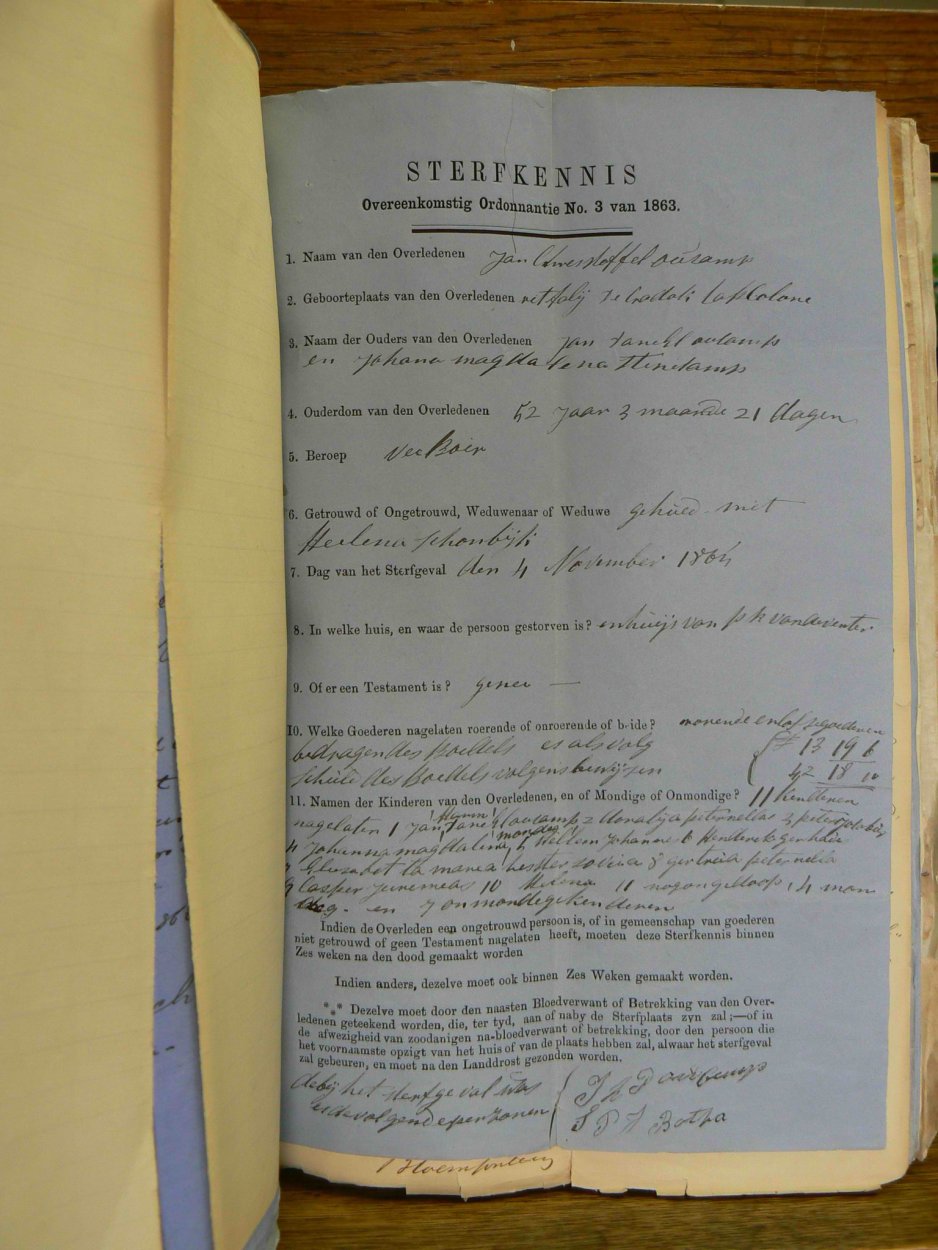 STERFKENNIS
Overeenkomstig Ordonnantie No. 3 van 1863.
1. Naam van den Overledenen Jan Chrestoffel oúcamp
2. Geboorteplaats van den Overledenen
3. Naam der Ouders van den Overledenen Jan oucamp
en Johana magdalena
4. Ouderdom van den Overledenen 52 Jaar 3 maande 21 dagen
5. Beroep vee Boer
6. Getrouwd of Ongetrouwd, Weduwenaar of Weduwe gehúed met
Heelena
7. Dag van het Sterfgeval den 4 November 1864
8. In welke huis, en waar de persoon gestorven is? enhuijs van p k vandeventer
9. Of er een Testament is? genee —
10. Welke Goederen nagelaten roerende of onroerende of beide? rorende en
bedragen des Boedels es als volg £ 13 19 6
schúld des Boedels volgens bewijsen 42 18 10
11. Namen der Kinderen van den Overledenen, en of Mondige of Onmondige? 11 kenderen
nagelaten 1 Jan oucamp 2 peternella 3 peter Jacobús
4 Johanna magdalena mondeg 5 Wellem Johannes 6 Henderek
7 Elezabet ta marea hester soveia 8 gertruia peternelia
9 Casper Juremeas 10 Helena 11 nogongedoop, 4 mon
deg. en 7 onmondege kenderen
Indien de Overleden een ongetrouwd persoon is, of in gemeenschap van goederen
niet getrouwd of geen Testament nagelaten heeft, moeten deze Sterfkennis binnen
Zes weken na den dood gemaakt worden
Indien anders, dezelve moet ook binnen Zes Weken gemaakt worden.
*** Dezelve moet door den naasten Bloedverwant of Betrekking van den Over-
ledenen geteekend worden, die, ter tyd, aan of naby de Sterfplaats zyn zal;—of in
de afwezigheid van zoodanigen na-bloedverwant of betrekking, door den persoon die
het voornaamste opzigt van het huis of van de plaats hebben zal, alwaar het sterfgeval
zal gebeuren, en moet na den Landdrost gezonden worden.
debij het sterfgeval was
es de volgende perzonen
J A D oucamp
S P J Botha
Bloemfontein